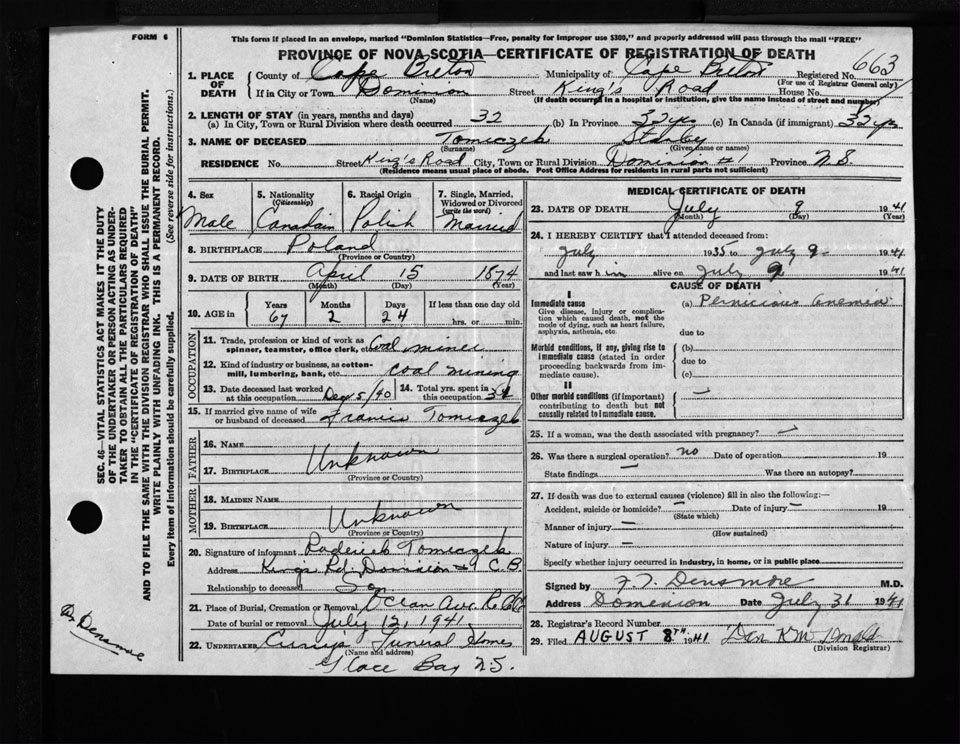 FORM 6
This form if placed in an envelope, marked "Dominion Statistics—Free, penalty for improper use $300," and properly addressed will pass through the mail "FREE"
PROVINCE OF NOVA SCOTIA—CERTIFICATE OF REGISTRATION OF DEATH
663
1. PLACE OF DEATH County of Cape Breton Municipality of Cape Breton Registered No.
(For use of Registrar General only)
If in City or Town Dominion Street King's Road House No.
(Name) (If death occurred in a hospital or institution, give the name instead of street and number)
2. LENGTH OF STAY (in years, months and days)
(a) In City, Town or Rural Division where death occurred 32 (b) In Province 32 yrs (c) In Canada (if immigrant) 32 yrs
3. NAME OF DECEASED Tomiczek Stanley
(Surname) (Given name or names)
RESIDENCE No. Street King's Road City, Town or Rural Division Dominion #1 Province N.S.
(Residence means usual place of abode. Post Office Address for residents in rural parts not sufficient)
4. Sex Male
5. Nationality (Citizenship) Canadain
6. Racial Origin Polish
7. Single, Married, Widowed or Divorced (write the word) Married
8. BIRTHPLACE Poland
(Province or Country)
9. DATE OF BIRTH April 15 1874
(Month) (Day) (Year)
10. AGE in Years 67 Months 2 Days 24 If less than one day old hrs. or min.
OCCUPATION
11. Trade, profession or kind of work as spinner, teamster, office clerk, etc. Coal miner
12. Kind of industry or business, as cotton-mill, lumbering, bank, etc. Coal mining
13. Date deceased last worked at this occupation Dec 5/40 14. Total yrs. spent in this occupation
15. If married give name of wife or husband of deceased Tomiczek
FATHER
16. NAME
Unknown
17. BIRTHPLACE
(Province or Country)
MOTHER
18. MAIDEN NAME
Unknown
19. BIRTHPLACE
(Province or Country)
20. Signature of informant Roderick Tomiczek
Address Kings Rd. Dominion C.B.
Relationship to deceased Son
21. Place of Burial, Cremation or Removal Ocean Ave.
Date of burial or removal July 12, 1941
22. UNDERTAKER Funeral Home
(Name and address)
Glace Bay N.S.
MEDICAL CERTIFICATE OF DEATH
23. DATE OF DEATH July 9 1941
(Month) (Day) (Year)
24. I HEREBY CERTIFY that I attended deceased from:
July 1935 to July 9 1941
and last saw him alive on July 9 1941
CAUSE OF DEATH
I
Immediate cause (a) Pernicious anemia
Give disease, injury or complication which caused death, not the mode of dying, such as heart failure, asphyxia, asthenia, etc.
due to
Morbid conditions, if any, giving rise to immediate cause (stated in order proceeding backwards from immediate cause).
(b)
due to
(c)
II
Other morbid conditions (if important) contributing to death but not causally related to immediate cause. —
25. If a woman, was the death associated with pregnancy? —
26. Was there a surgical operation? no Date of operation 19
State findings — Was there an autopsy?
27. If death was due to external causes (violence) fill in also the following:—
Accident, suicide or homicide? — Date of injury — 19
(State which)
Manner of injury —
(How sustained)
Nature of injury —
Specify whether injury occurred in Industry, in home, or in public place
Signed by F. T. Densmore M.D.
Address Dominion Date July 31 1941
28. Registrar's Record Number
29. Filed AUGUST 8TH 1941 Dan K McDonald
(Division Registrar)
SEC. 46—VITAL STATISTICS ACT MAKES IT THE DUTY
OF THE UNDERTAKER OR PERSON ACTING AS UNDER-
TAKER TO OBTAIN ALL THE PARTICULARS REQUIRED
IN THE "CERTIFICATE OF REGISTRATION OF DEATH"
AND TO FILE THE SAME WITH THE DIVISION REGISTRAR WHO SHALL ISSUE THE BURIAL PERMIT.
WRITE PLAINLY WITH UNFADING INK. THIS IS A PERMANENT RECORD.
Every item of information should be carefully supplied. (See reverse side for instructions.)
Dr Densmore